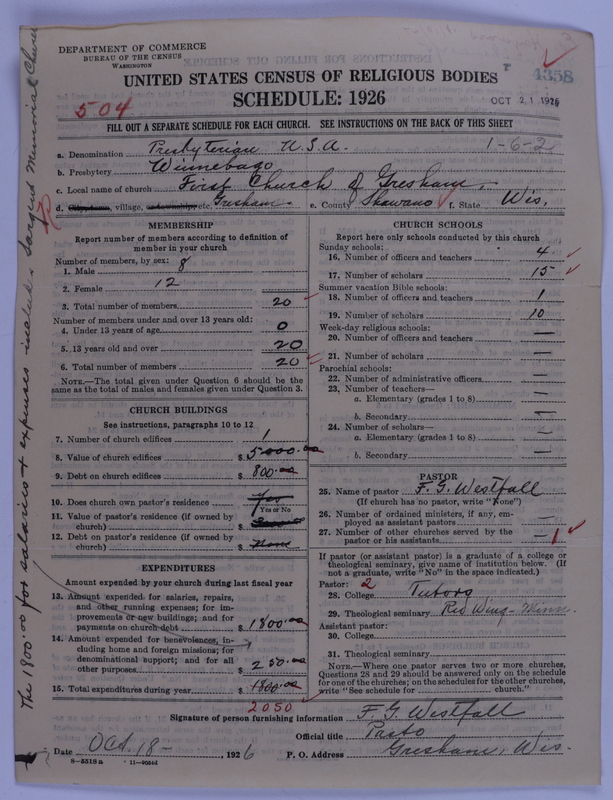 DEPARTMENT OF COMMERCE
BUREAU OF THE CENSUS
WASHINGTON
4358
UNITED STATES CENSUS OF RELIGIOUS BODIES
504
SCHEDULE: 1926
OCT 21 1926
FILL OUT A SEPARATE SCHEDULE FOR EACH CHURCH. SEE INSTRUCTIONS ON THE BACK OF THIS SHEET
a. Denomination Presbyterian U.S.A. 1-6-2
b. Presbytery Winnebago
c. Local name of church First Church of Gresham,
d. City, village, etc. Gresham. e. County Shawano f. State Wis.
MEMBERSHIP
Report number of members according to definition of member in your church
Number of members, by sex:
1. Male 8
2. Female 12
3. Total number of members 20
Number of members under and over 13 years old:
4. Under 13 years of age 0
5. 13 years old and over 20
6. Total number of members 20
NOTE.—The total given under Question 6 should be the same as the total of males and females given under Question 3.
CHURCH BUILDINGS
See instructions, paragraphs 10 to 12
7. Number of church edifices 1
8. Value of church edifices $ 5000.00
9. Debt on church edifices $ 800.00
10. Does church own pastor's residence
Yes or No
11. Value of pastor's residence (if owned by church) $
12. Debt on pastor's residence (if owned by church) $ None
EXPENDITURES
Amount expended by your church during last fiscal year
13. Amount expended for salaries, repairs, and other running expenses; for improvements or new buildings; and for payments on church debt $ 1800.00
14. Amount expended for benevolences, including home and foreign missions; for denominational support; and for all other purposes $ 250.00
15. Total expenditures during year $ 1800.00
2050
CHURCH SCHOOLS
Report here only schools conducted by this church
Sunday schools:
16. Number of officers and teachers 4
17. Number of scholars 15
Summer vacation Bible schools:
18. Number of officers and teachers 1
19. Number of scholars 10
Week-day religious schools:
20. Number of officers and teachers —
21. Number of scholars —
Parochial schools:
22. Number of administrative officers —
23. Number of teachers—
a. Elementary (grades 1 to 8) —
b. Secondary —
24. Number of scholars—
a. Elementary (grades 1 to 8) —
b. Secondary —
PASTOR
25. Name of pastor F. G. Westfall
(If church has no pastor, write "None")
26. Number of ordained ministers, if any, employed as assistant pastors —
27. Number of other churches served by the pastor or his assistants — 1
If pastor (or assistant pastor) is a graduate of a college or theological seminary, give name of institution below. (If not a graduate, write "No" in the space indicated.)
Pastor: 2
28. College
29. Theological seminary Red Wing - Minn.
Assistant pastor:
30. College
31. Theological seminary
NOTE.—Where one pastor serves two or more churches, Questions 28 and 29 should be answered only on the schedule for one of the churches; on the schedules for the other churches, write "See schedule for church."
Signature of person furnishing information F. G. Westfall
Official title
Date Oct. 18 - , 1926 P. O. Address Gresham, Wis.
8—5518 a
The 1800.00 for salaries & expenses includes Memorial Church